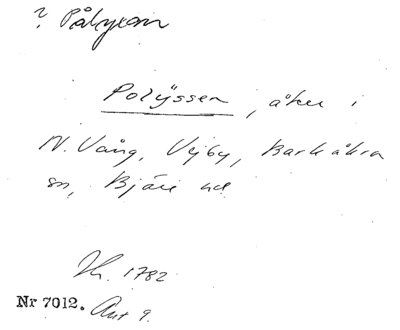 ? Påhyxan
Polÿssen, åker i
N. Vång, Vejby, Barkåkra
sn, Bjäre hd
Th. 1782
Nr 7012. Akt 9.